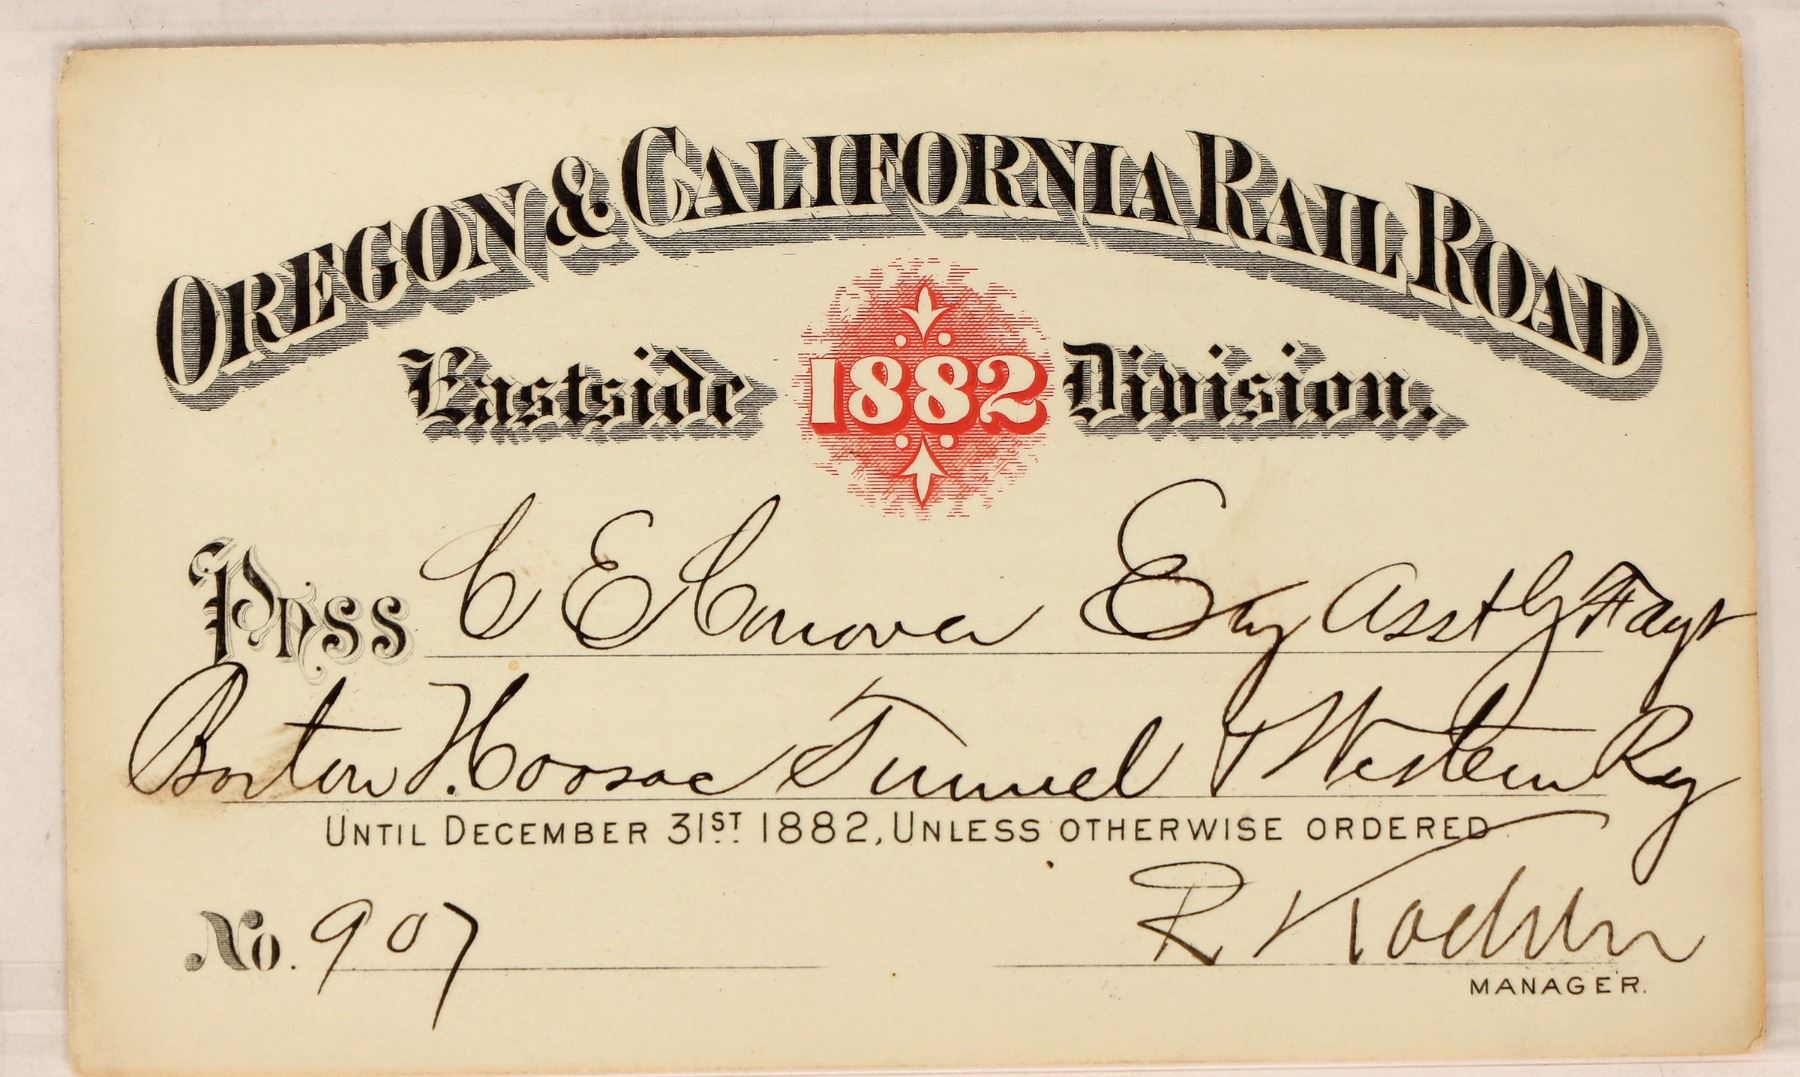 OREGON & CALIFORNIA RAIL ROAD
Eastside 1882 Division.
Pass C E Conover Esq Asst G F Agt
Boston Hoosac Tunnel & Western Ry
UNTIL DECEMBER 31ST 1882, UNLESS OTHERWISE ORDERED.
No. 907 R Koehler
MANAGER.